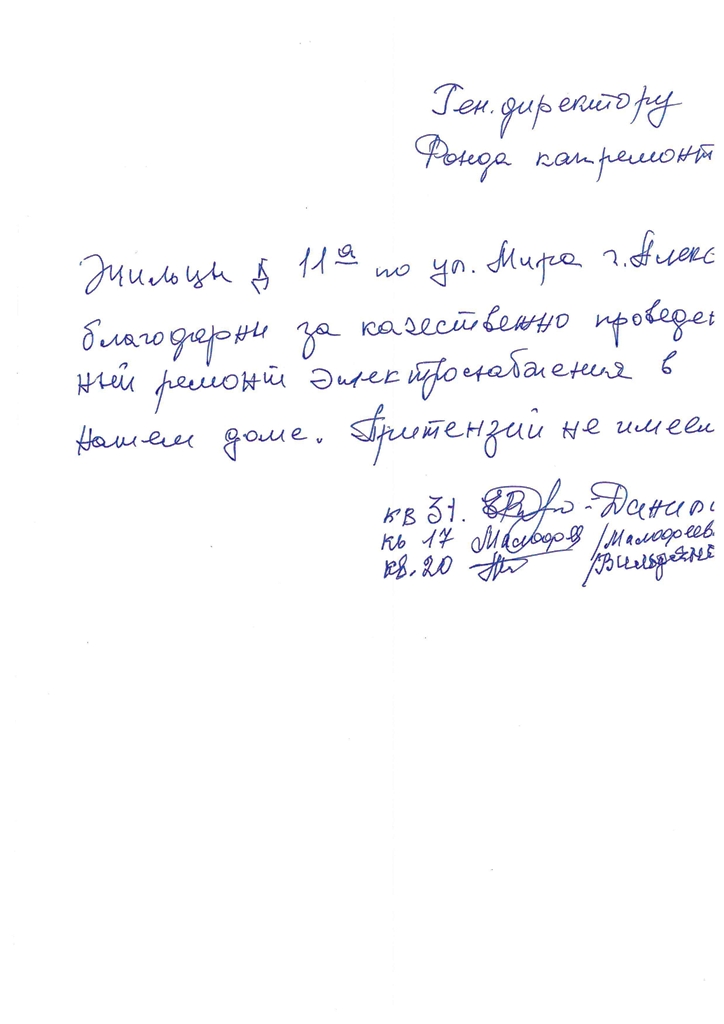 Ген. директору
Фонда капремонт
Жильцы д 11а по ул. Мира г. Алекс
благодарны за качественно проведен
ный ремонт электроснабжения в
нашем доме. Притензий не имеем
кв 31. Данил
кв 17 Малофеев /Малофеев
кв. 20